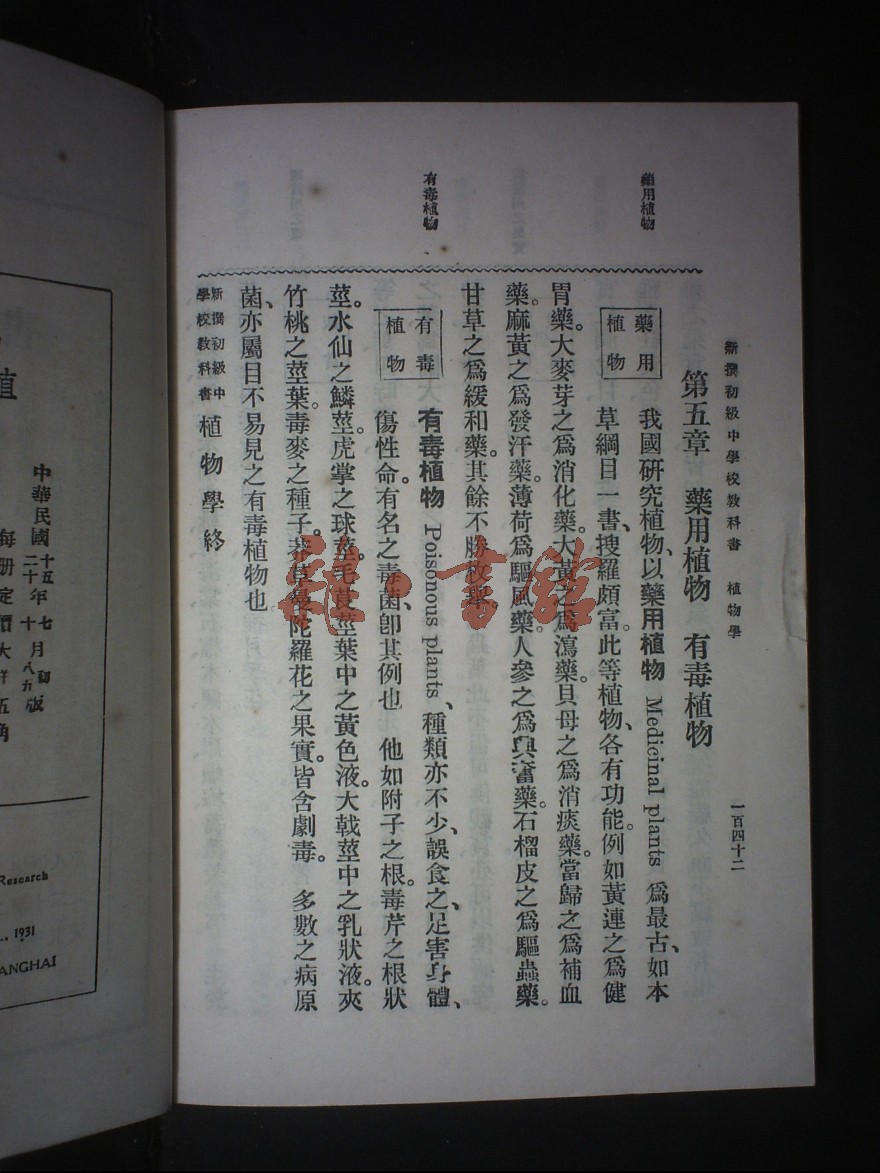 新撰初級中學校教科書　植物學
一百四十二
第五章　藥用植物　有毒植物
藥用植物
藥用植物
我國研究植物、以藥用植物 Medicinal plants 爲最古、如本
草綱目一書、搜羅頗富。此等植物、各有功能。例如黃連之爲健
胃藥。大麥芽之爲消化藥。大黃之爲瀉藥。貝母之爲消痰藥。當歸之爲補血
藥。麻黃之爲發汗藥。薄荷爲驅風藥。人參之爲興奮藥。石榴皮之爲驅蟲藥。
甘草之爲緩和藥。其餘不勝枚舉。
有毒植物
有毒植物
有毒植物 Poisonous plants、種類亦不少、誤食之、足害身體、
傷性命。有名之毒菌、卽其例也　他如附子之根。毒芹之根狀
莖。水仙之鱗莖。虎掌之球莖。毛茛莖葉中之黃色液。大戟莖中之乳狀液。夾
竹桃之莖葉。毒麥之種子。莽草曼陀羅花之果實。皆含劇毒。　多數之病原
菌、亦屬目不易見之有毒植物也
新撰初級中學校教科書　植物學終
植
中華民國
十五年七月初版
二十年十月八九版
每册定價大洋五角
Research
., 1931
ANGHAI